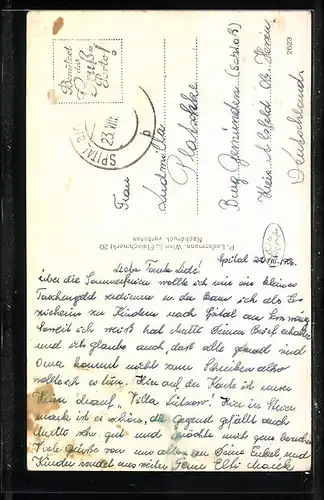 Benütset
das
Grußn
Porto!
SPITAL
23.VIII.
Frau
Ludmilla
Platschke
Burg Gemünden (Schloß)
Kreis Alsfeld Ob. Hessen
Deutschland
2623
P. Ledermann, Wien I., Fleischmarkt 20
Nachdruck verboten
Spital 22.VIII.
Liebe Tante Lidi!
über die Sommerferien wollte ich mir ein kleines
Taschengeld verdienen und da kam ich als
zu Kindern nach Spital am
Soviel ich weiß hat Mutti Deinen Brief erhalten
und ich glaube auch, daß alle gesund sind
Oma kommt nicht zum Schreiben also
will ich es tun. Hier auf der Karte ist unser
Heim drauf, "Villa Hier in Steier-
mark ist es schön, die Gegend gefällt auch
Mutti sehr gut und möchte mich gern besuchen
Viele Grüße von uns allen an Deine Enkel und
Kinder sendet aus weiter Ferne Elli